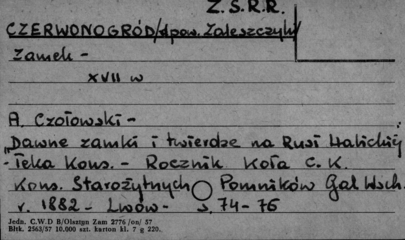 Z.S.R.R.
CZERWONOGRÓD/dpow. Zaleszczyki/
Zamek -
XVII w
A. Czołowski -
"Dawne zamki i twierdze na Rusi Halickiej"
- Teka Kons. - Rocznik Koła C. K.
Kons. Starożytnych Pomników Gal Wsch.
r. 1882 - Lwów - s. 74-76
Jedn. C.W.D B/Olsztyn Zam 2776 /on/ 57
Bltk. 2563/57 10.000 szt. karton kl. 7 g 220.